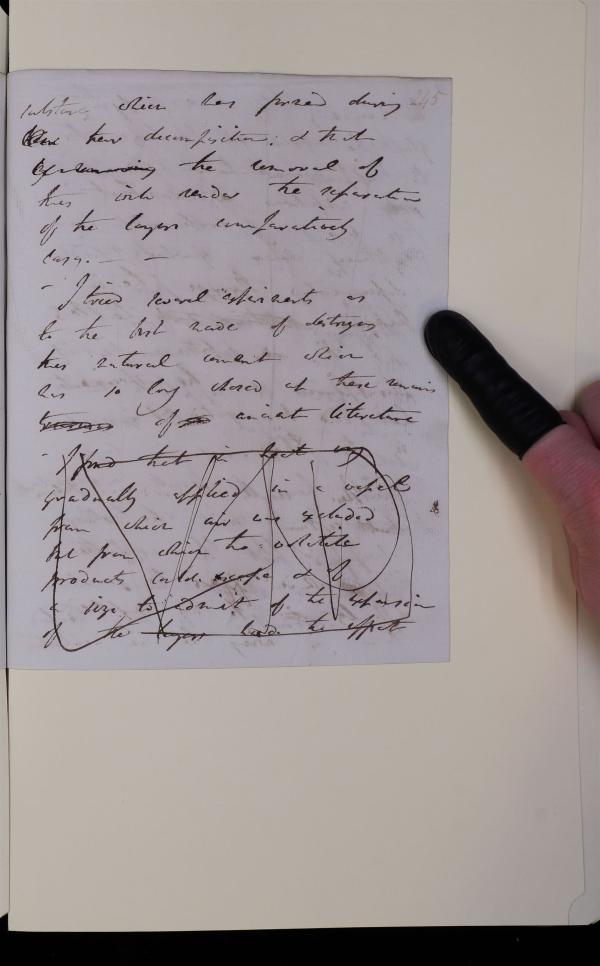 245
substance which has formed during
their decomposition; & that
the removal of
this will render the separation
of the layers comparatively
easy. — —
- I tried several experiments as
to the best mode of destroying
this natural cement which
has so long closed up these remains
of ancient literature
- I find that in heat
gradually applied in a vessel
from which air was excluded
but from which the volatile
products could escape & of
a size to admit of the expansion
of the layers had the effect